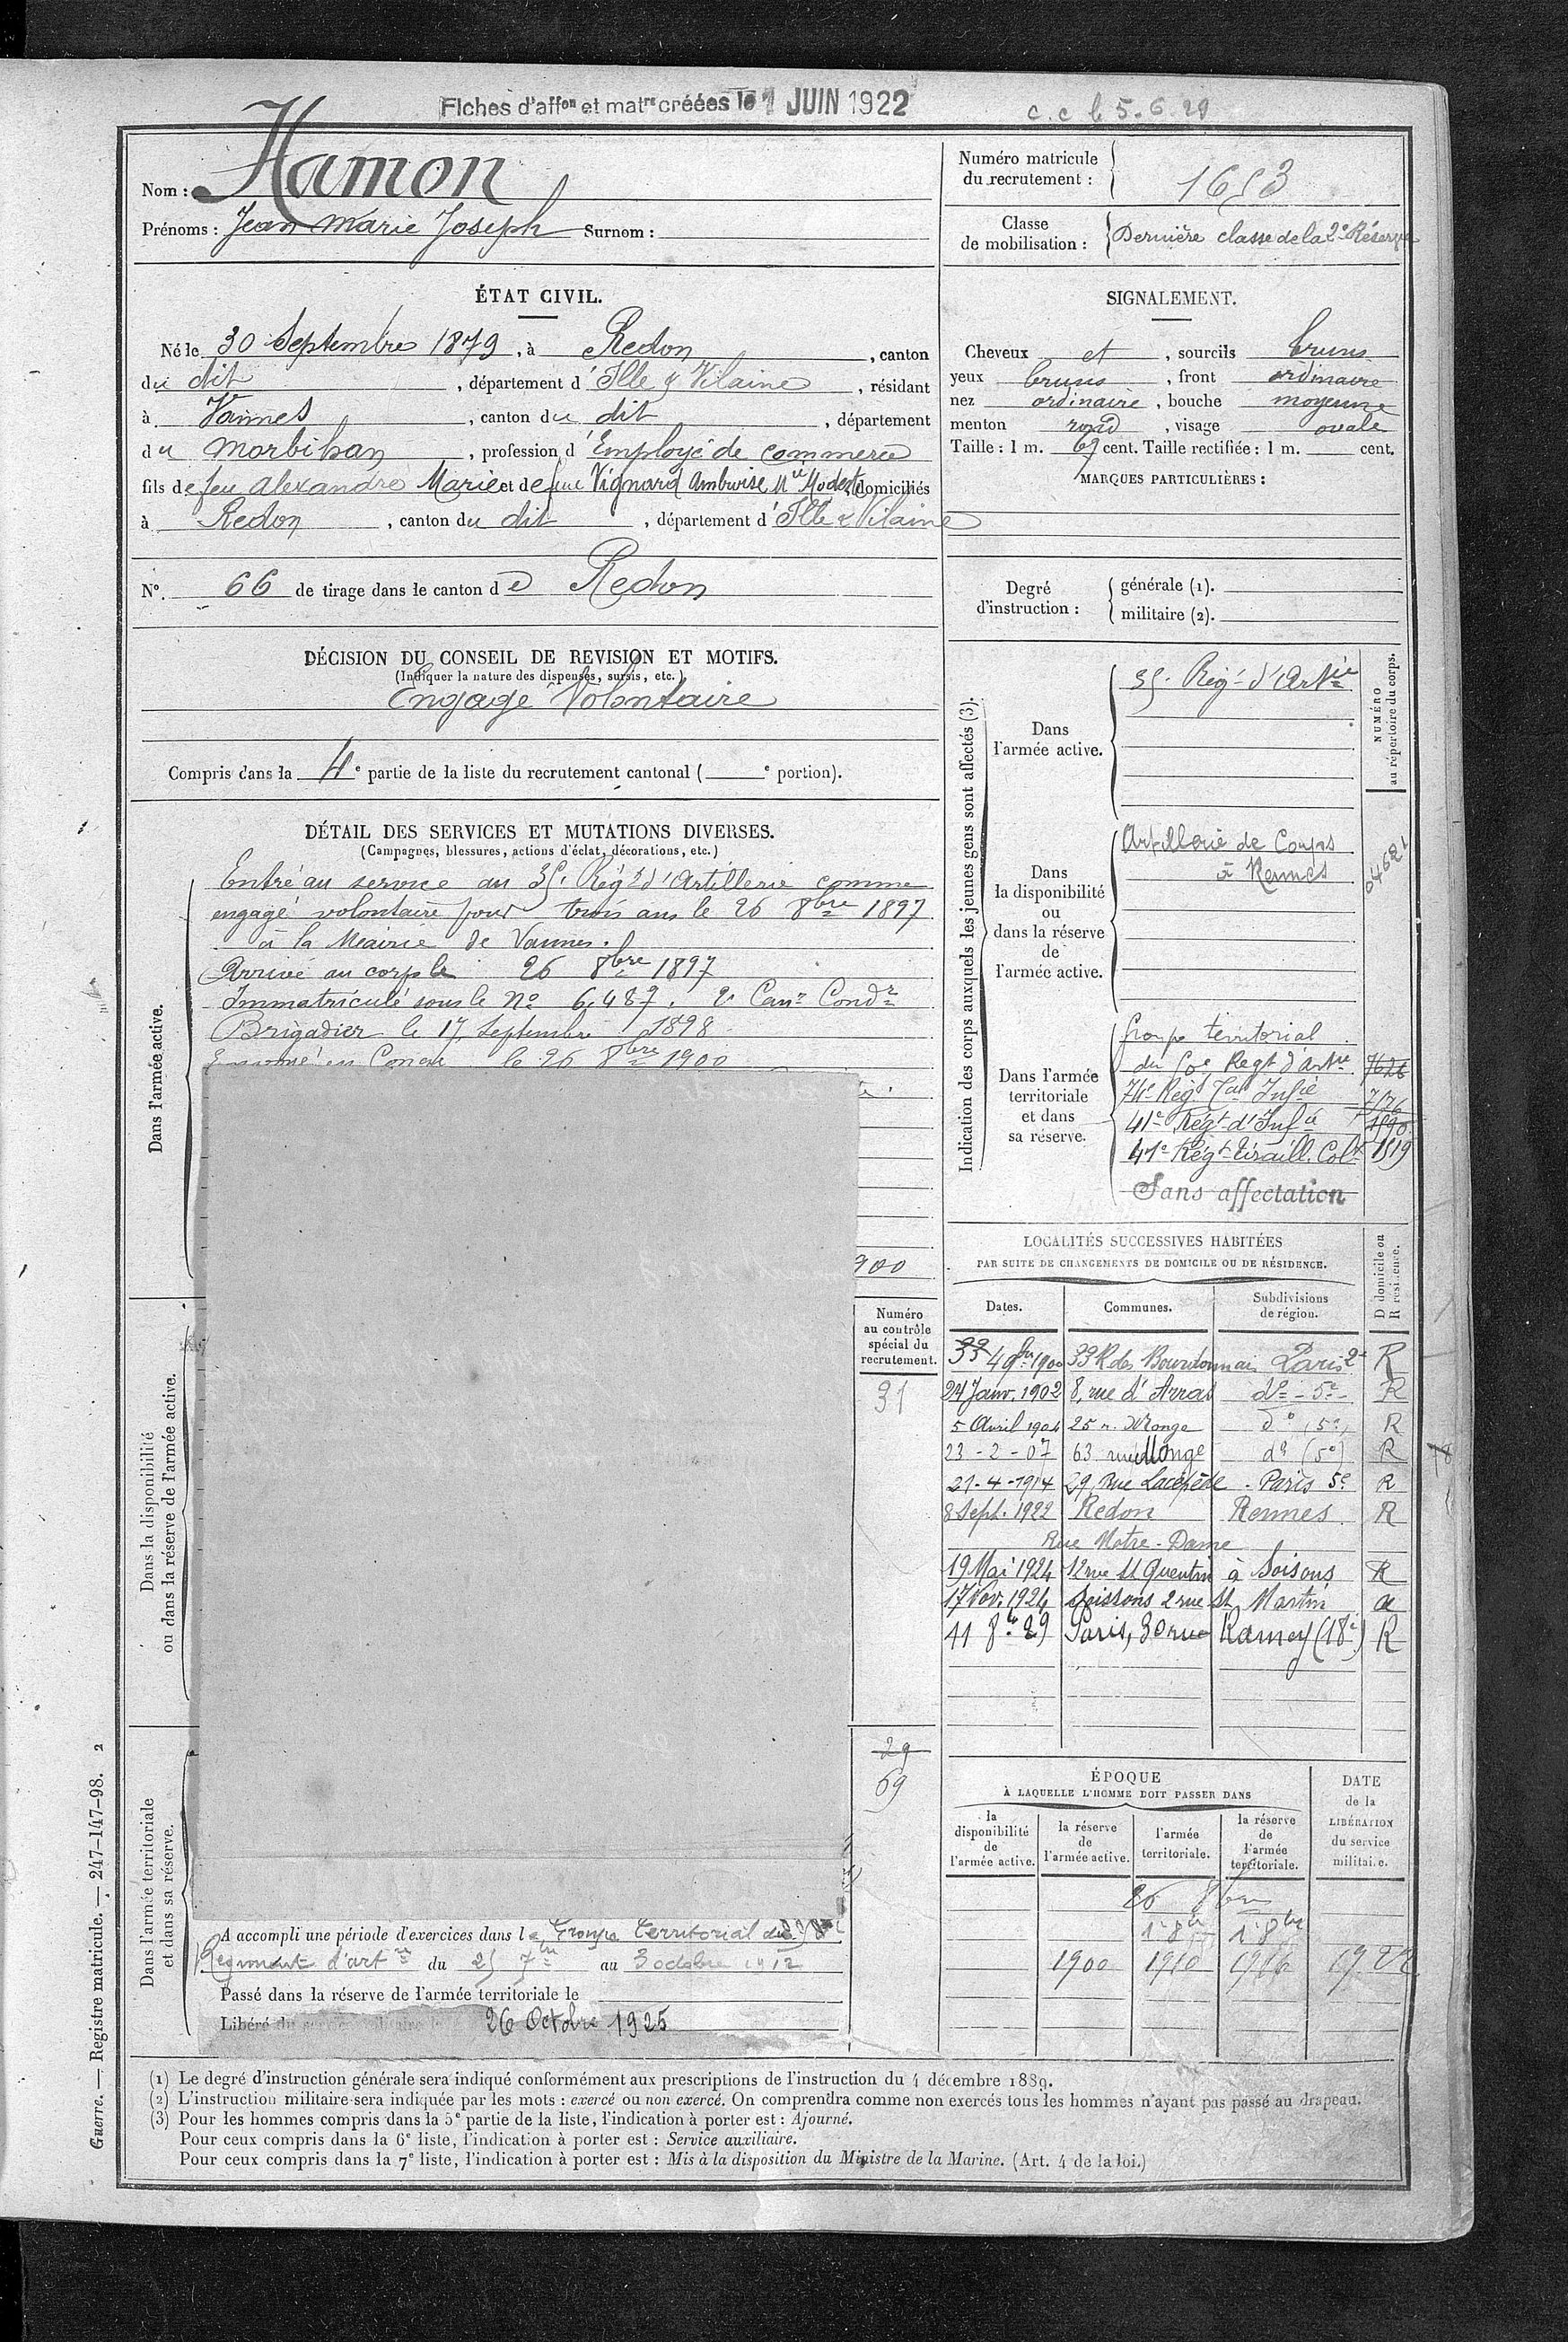 Fiches d'affon et matre créées le 1 JUIN 1922
c. c le 5.6.29
Nom : Hamon
Prénoms : Jean Marie Joseph Surnom :
Numéro matricule
du recrutement : 1653
Classe
de mobilisation : Dernière classe de la 2e Réserve
ÉTAT CIVIL.
Né le 30 Septembre 1879, à Redon, canton
du dit, département d'Ille & Vilaine, résidant
à Vannes, canton du dit, département
du Morbihan, profession d'Employé de commerce
fils de feu Alexandre Marie et de feue Vignard Ambroise Mie Modeste domiciliés
à Redon, canton du dit, département d'Ille & Vilaine
No. 66 de tirage dans le canton de Redon
SIGNALEMENT.
Cheveux et, sourcils bruns
yeux bruns, front ordinaire
nez ordinaire, bouche moyenne
menton rond, visage ovale
Taille : 1 m. 67 cent. Taille rectifiée : 1 m. cent.
MARQUES PARTICULIÈRES :
Degré
d'instruction :
générale (1).
militaire (2).
DÉCISION DU CONSEIL DE REVISION ET MOTIFS.
(Indiquer la nature des dispenses, sursis, etc.)
Engagé Volontaire
Compris dans la 4e partie de la liste du recrutement cantonal ( e portion).
DÉTAIL DES SERVICES ET MUTATIONS DIVERSES.
(Campagnes, blessures, actions d'éclat, décorations, etc.)
Dans l'armée active.
Entré au service au 35e Régt d'Artillerie comme
engagé volontaire pour trois ans le 26 8bre 1897
à la Mairie de Vannes.
Arrivé au corps le 26 8bre 1897
Immatriculé sous le No 6.487. 2e Canr Condr
Brigadier le 17 Septembre 1898
le 26 8bre 1900
900
Dans la disponibilité
ou dans la réserve de l'armée active.
Numéro
au contrôle
spécial du
recrutement.
31
Dans l'armée territoriale
et dans sa réserve.
29
69
A accompli une période d'exercices dans le Groupe territorial du
Régiment d'artie du 25 7bre au 3 octobre 1912
Passé dans la réserve de l'armée territoriale le
Libéré du service militaire le 26 Octobre 1925
Indication des corps auxquels les jeunes gens sont affectés (3).
NUMÉRO
au répertoire du corps.
Dans
l'armée active.
35e Régt d'Artie
Dans
la disponibilité
ou
dans la réserve
de
l'armée active.
Artillerie de Corps
à Rennes
04621
Dans l'armée
territoriale
et dans
sa réserve.
Groupe territorial
du 50e Regt d'Artie 7626
74e Reg. Tal Infie 7176
41e Régt d'Infie 1890
41e Régt Tiraill. Colx 1519
Sans affectation
LOCALITÉS SUCCESSIVES HABITÉES
PAR SUITE DE CHANGEMENTS DE DOMICILE OU DE RÉSIDENCE.
Dates. Communes. Subdivisions
de région. D domicile ou
R résidence.
4 9bre 1900 33 R des Bourdonnais Paris 2e R
24 Janv. 1902 8, rue d'Arras do - 5e - R
5 Avril 1904 25 r. Monge do (5e) R
23-2-07 63 rue Monge do (5e) R
21-4-1914 29, Rue Lacépède - Paris 5e R
8 Sept. 1922 Redon Rennes R
Rue Notre-Dame
19 Mai 1924 12 rue St Quentin à Soisons R
17 Nov. 1924 Soissons 2 rue St Martin a
11 8bre 29 Paris, 30 rue Ramey (18e) R
ÉPOQUE
À LAQUELLE L'HOMME DOIT PASSER DANS
DATE
de la
LIBÉRATION
du service
militaire.
la
disponibilité
de
l'armée active.
la réserve
de
l'armée active.
l'armée
territoriale.
la réserve
de
l'armée
territoriale.
26 8bre
1er 8bre 1er 8bre
1900 1910 1916
Guerre. — Registre matricule. — 247-147-98. 2
(1) Le degré d'instruction générale sera indiqué conformément aux prescriptions de l'instruction du 4 décembre 1889.
(2) L'instruction militaire sera indiquée par les mots : exercé ou non exercé. On comprendra comme non exercés tous les hommes n'ayant pas passé au drapeau.
(3) Pour les hommes compris dans la 5e partie de la liste, l'indication à porter est : Ajourné.
Pour ceux compris dans la 6e liste, l'indication à porter est : Service auxiliaire.
Pour ceux compris dans la 7e liste, l'indication à porter est : Mis à la disposition du Ministre de la Marine. (Art. 4 de la loi.)